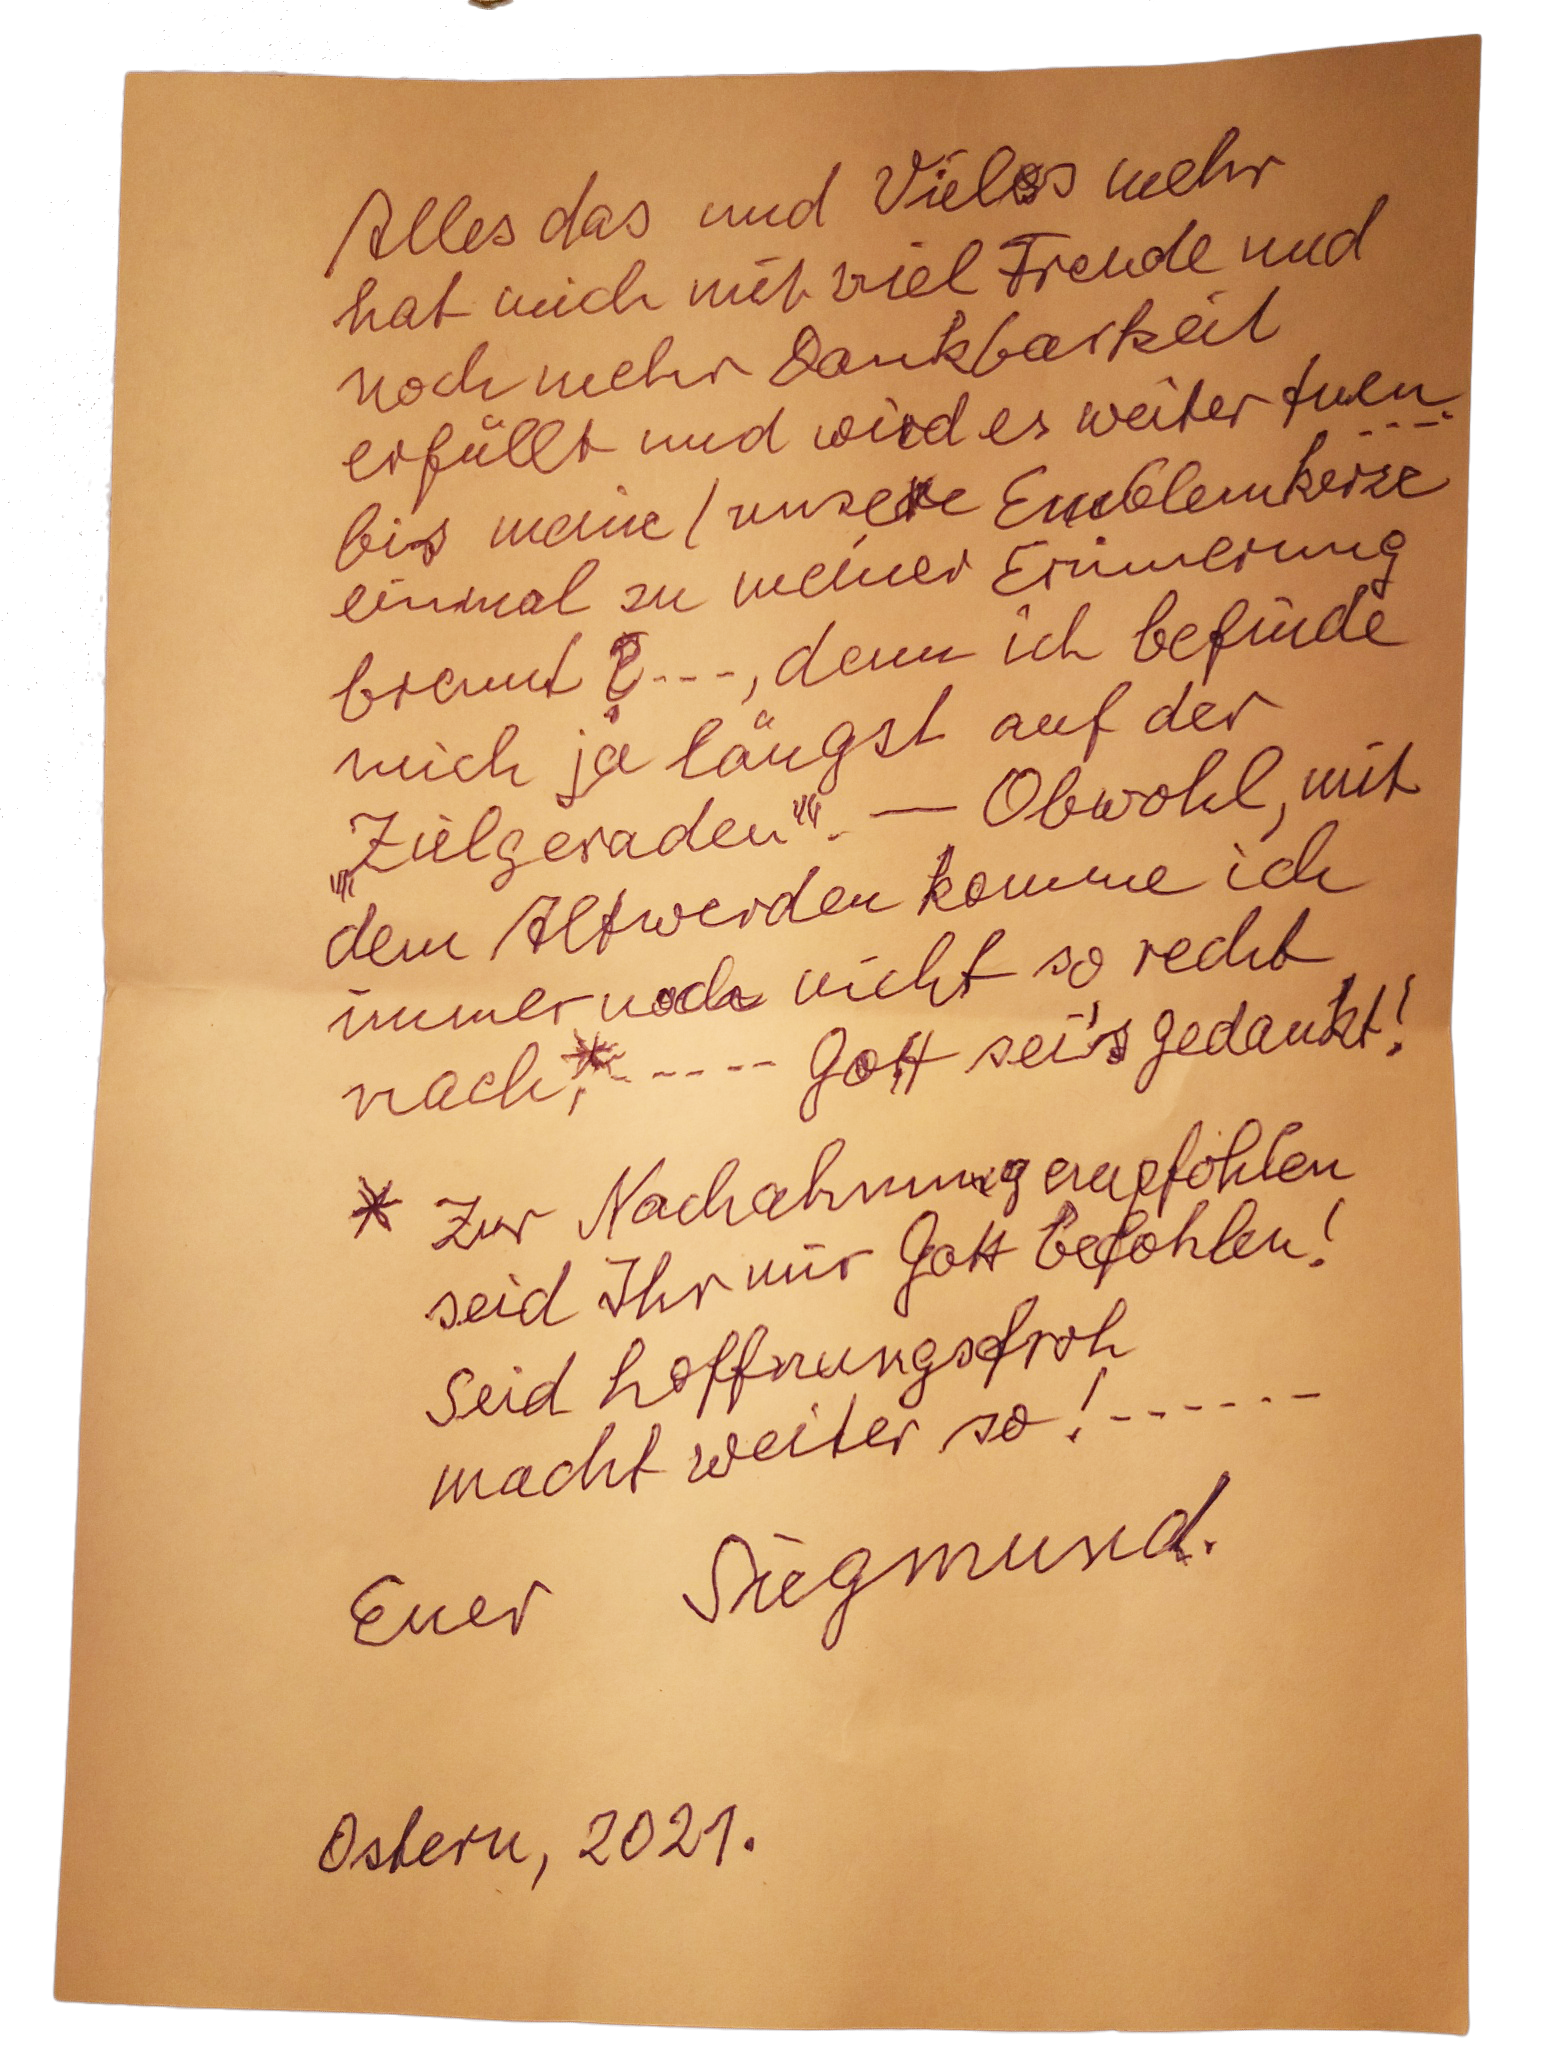 Alles das und Vieles mehr
hat mich mit viel Freude und
noch mehr Dankbarkeit
erfüllt und wird es weiter tuen
bis meine / unsere Emblemkerze
einmal zu meiner Erinnerung
brennt ? ---, denn ich befinde
mich ja längst auf der
„Zielgeraden“. — Obwohl, mit
dem Altwerden komme ich
immer noch nicht so recht
nach,* ----- Gott sei's gedankt!
* Zur Nachahmung empfohlen
seid Ihr mir Gott befohlen!
Seid hoffnungsfroh
macht weiter so! ------
Euer Siegmund.
Ostern, 2021.